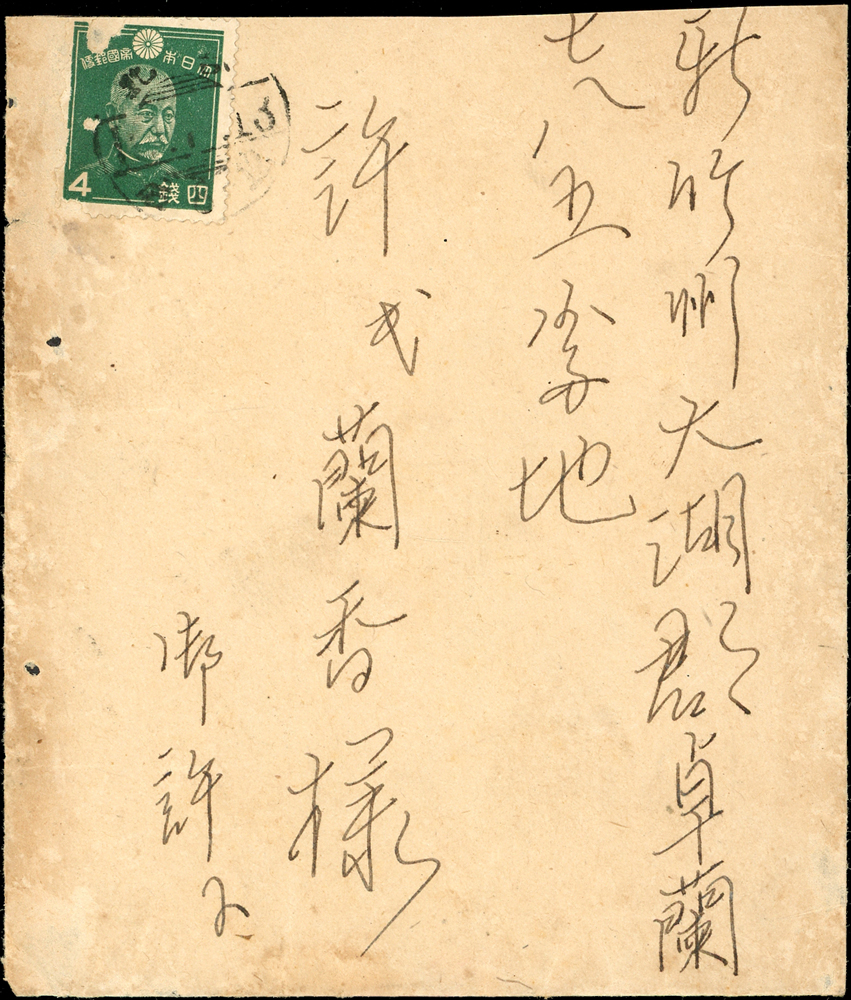 新竹州大湖郡卓蘭
七八五番地
許氏蘭香様
御許
大日本帝國郵便
4 四錢